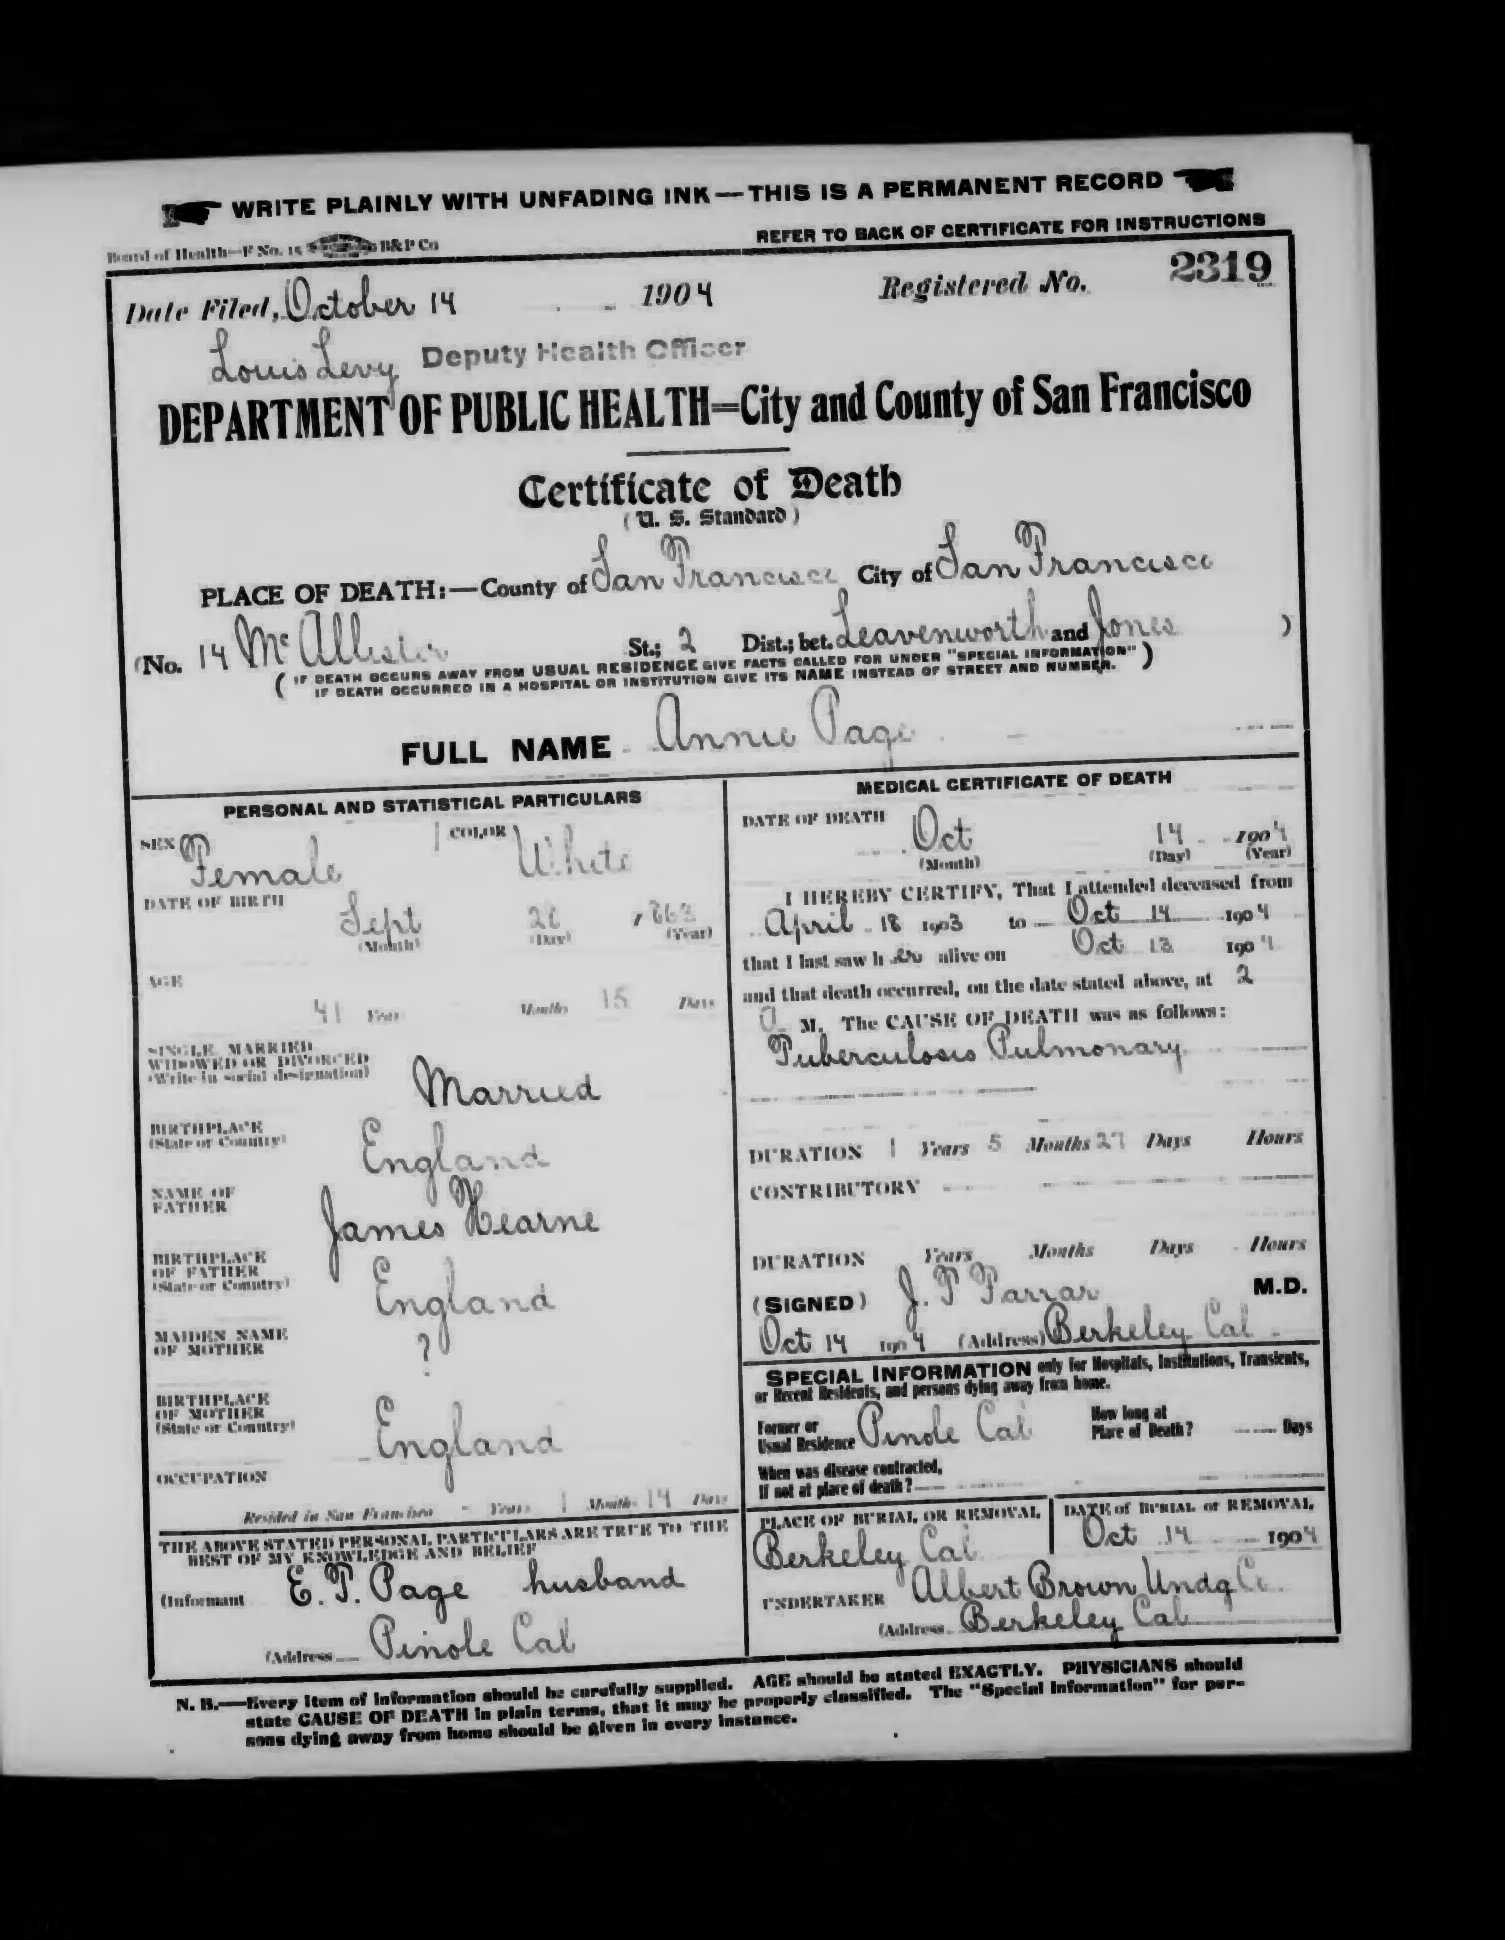 WRITE PLAINLY WITH UNFADING INK—THIS IS A PERMANENT RECORD
Board of Health—F No. 15 B&P Co REFER TO BACK OF CERTIFICATE FOR INSTRUCTIONS
Date Filed, October 14 1904 Registered No. 2319
Louis Levy Deputy Health Officer
DEPARTMENT OF PUBLIC HEALTH=City and County of San Francisco
Certificate of Death
(U. S. Standard)
PLACE OF DEATH:—County of San Francisco City of San Francisco
(No. 14 Mc Allister St.; 2 Dist.; bet. Leavenworth and Jones )
( IF DEATH OCCURS AWAY FROM USUAL RESIDENCE GIVE FACTS CALLED FOR UNDER "SPECIAL INFORMATION" )
IF DEATH OCCURRED IN A HOSPITAL OR INSTITUTION GIVE ITS NAME INSTEAD OF STREET AND NUMBER.
FULL NAME Annie Page
PERSONAL AND STATISTICAL PARTICULARS
SEX Female COLOR White
DATE OF BIRTH
Sept 28 1863
(Month) (Day) (Year)
AGE
41 Years Months 15 Days
SINGLE, MARRIED
WIDOWED OR DIVORCED
(Write in social designation)
Married
BIRTHPLACE
(State or Country)
England
NAME OF
FATHER
James Hearne
BIRTHPLACE
OF FATHER
(State or Country)
England
MAIDEN NAME
OF MOTHER
?
BIRTHPLACE
OF MOTHER
(State or Country)
England
OCCUPATION
Resided in San Francisco - Years 1 Months 14 Days
THE ABOVE STATED PERSONAL PARTICULARS ARE TRUE TO THE
BEST OF MY KNOWLEDGE AND BELIEF
(Informant E. T. Page husband
(Address Pinole Cal
MEDICAL CERTIFICATE OF DEATH
DATE OF DEATH
Oct 14 1904
(Month) (Day) (Year)
I HEREBY CERTIFY, That I attended deceased from
April 18 1903 to Oct 14 1904
that I last saw h er alive on Oct 13 1904
and that death occurred, on the date stated above, at 2
a M. The CAUSE OF DEATH was as follows:
Tuberculosis Pulmonary
DURATION 1 Years 5 Months 27 Days Hours
CONTRIBUTORY
DURATION Years Months Days Hours
(SIGNED) J. T. Farrar M.D.
Oct 14 1904 (Address) Berkeley Cal
SPECIAL INFORMATION only for Hospitals, Institutions, Transients,
or Recent Residents, and persons dying away from home.
Former or
Usual Residence Pinole Cal
How long at
Place of Death? Days
When was disease contracted,
If not at place of death?
PLACE OF BURIAL OR REMOVAL
Berkeley Cal
DATE of BURIAL or REMOVAL
Oct 14 1904
UNDERTAKER Albert Brown Undg Co.
(Address Berkeley Cal
N. B.—Every item of information should be carefully supplied. AGE should be stated EXACTLY. PHYSICIANS should
state CAUSE OF DEATH in plain terms, that it may be properly classified. The "Special Information" for per-
sons dying away from home should be given in every instance.